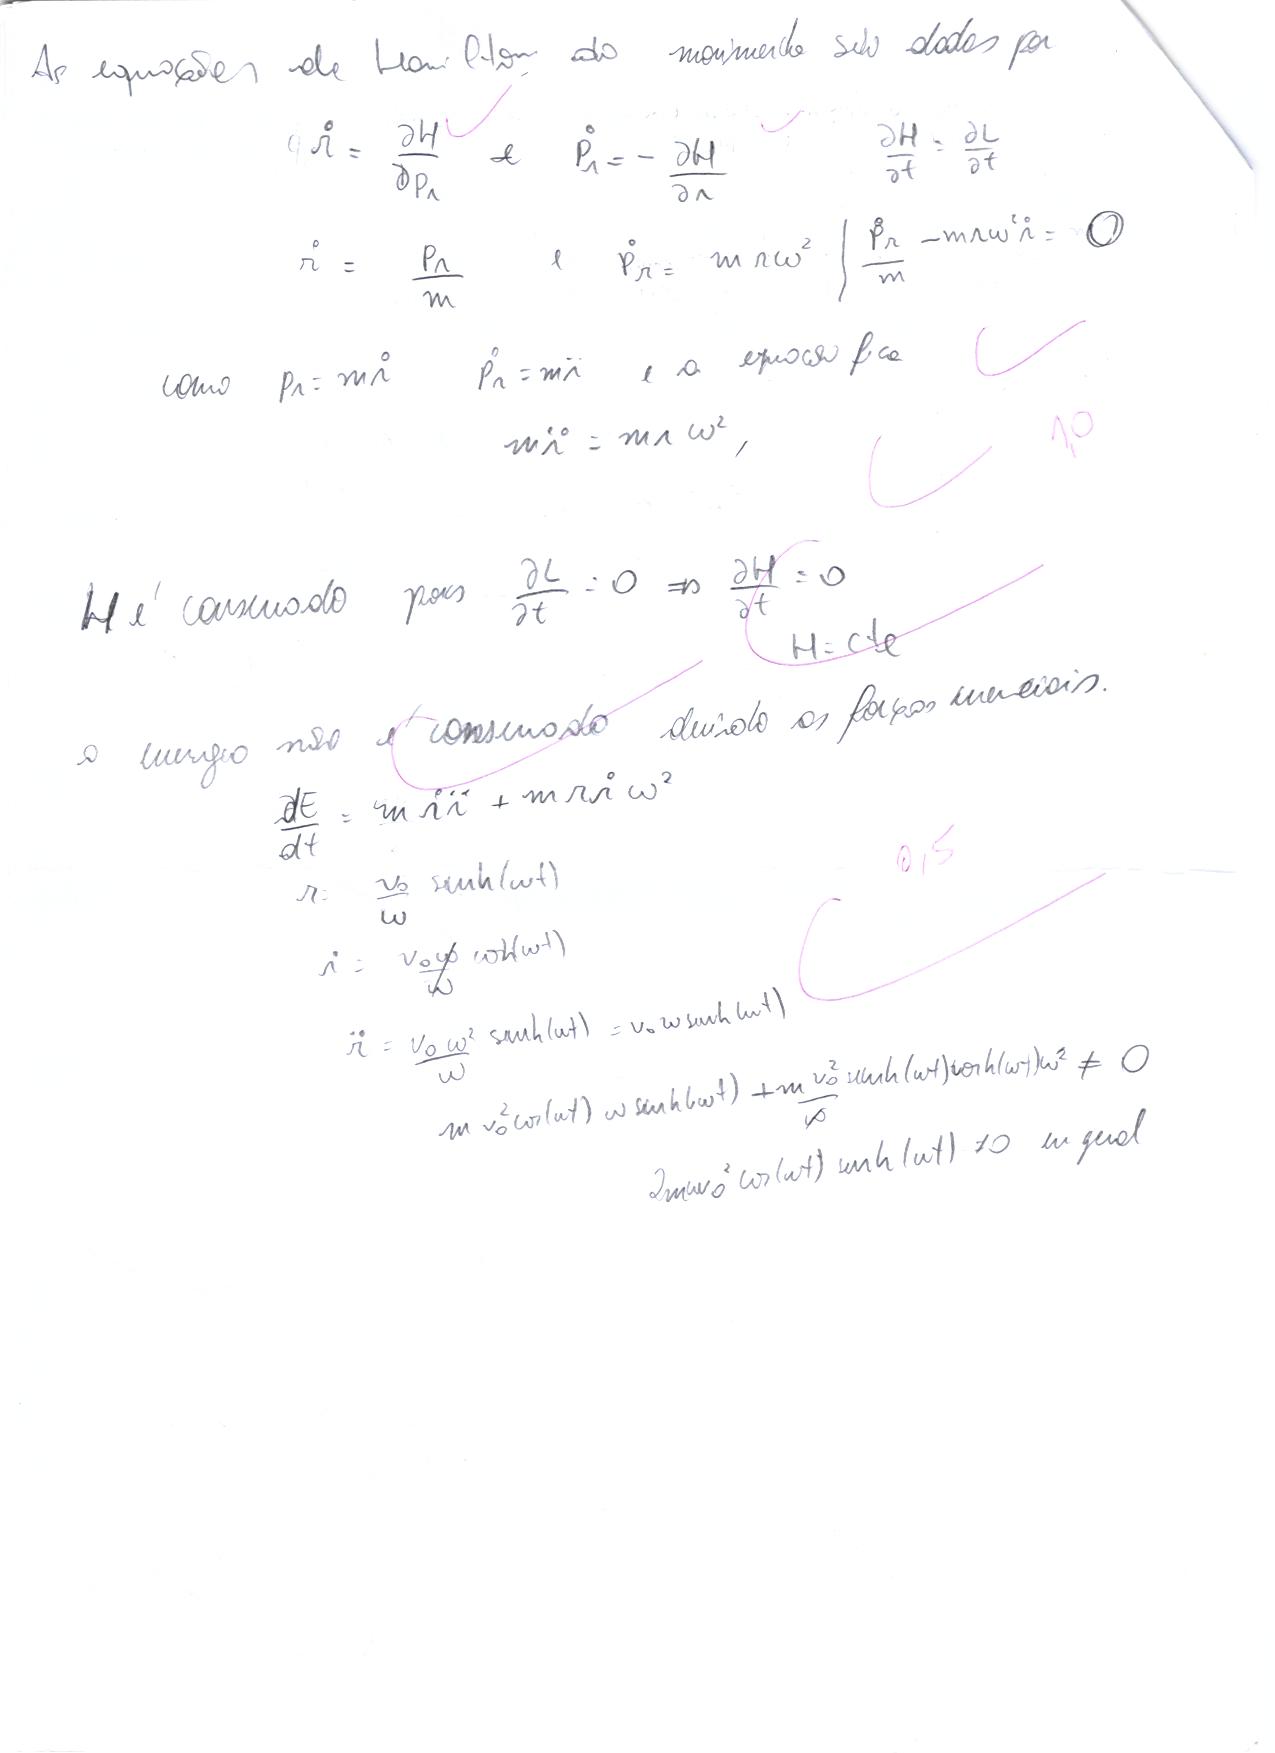 As equações de Hamilton do movimento são dadas por
ṙ = ∂H/∂p_r e ṗ_r = - ∂H/∂r ∂H/∂t = ∂L/∂t
ṙ = p_r/m e ṗ_r = m r ω² | ṗ_r/m - m r ω² ṙ = 0
como p_r = m ṙ ṗ_r = m r̈ e a equação fica
m r̈ = m r ω²,
1,0
H é conservado pois ∂L/∂t = 0 ⇒ ∂H/∂t = 0
H = cte
a energia não é conservado devido as forças inerciais.
dE/dt = m ṙ r̈ + m r ṙ ω²
0,5
r = v₀/ω senh(ωt)
ṙ = v₀ω/ω cosh(ωt)
r̈ = v₀ω²/ω senh(ωt) = v₀ ω senh(ωt)
m v₀² cos(ωt) ω senh(ωt) + m v₀²/ω senh(ωt) cosh(ωt) ω² ≠ 0
2mωv₀² cos(ωt) senh(ωt) ≠ 0 em geral